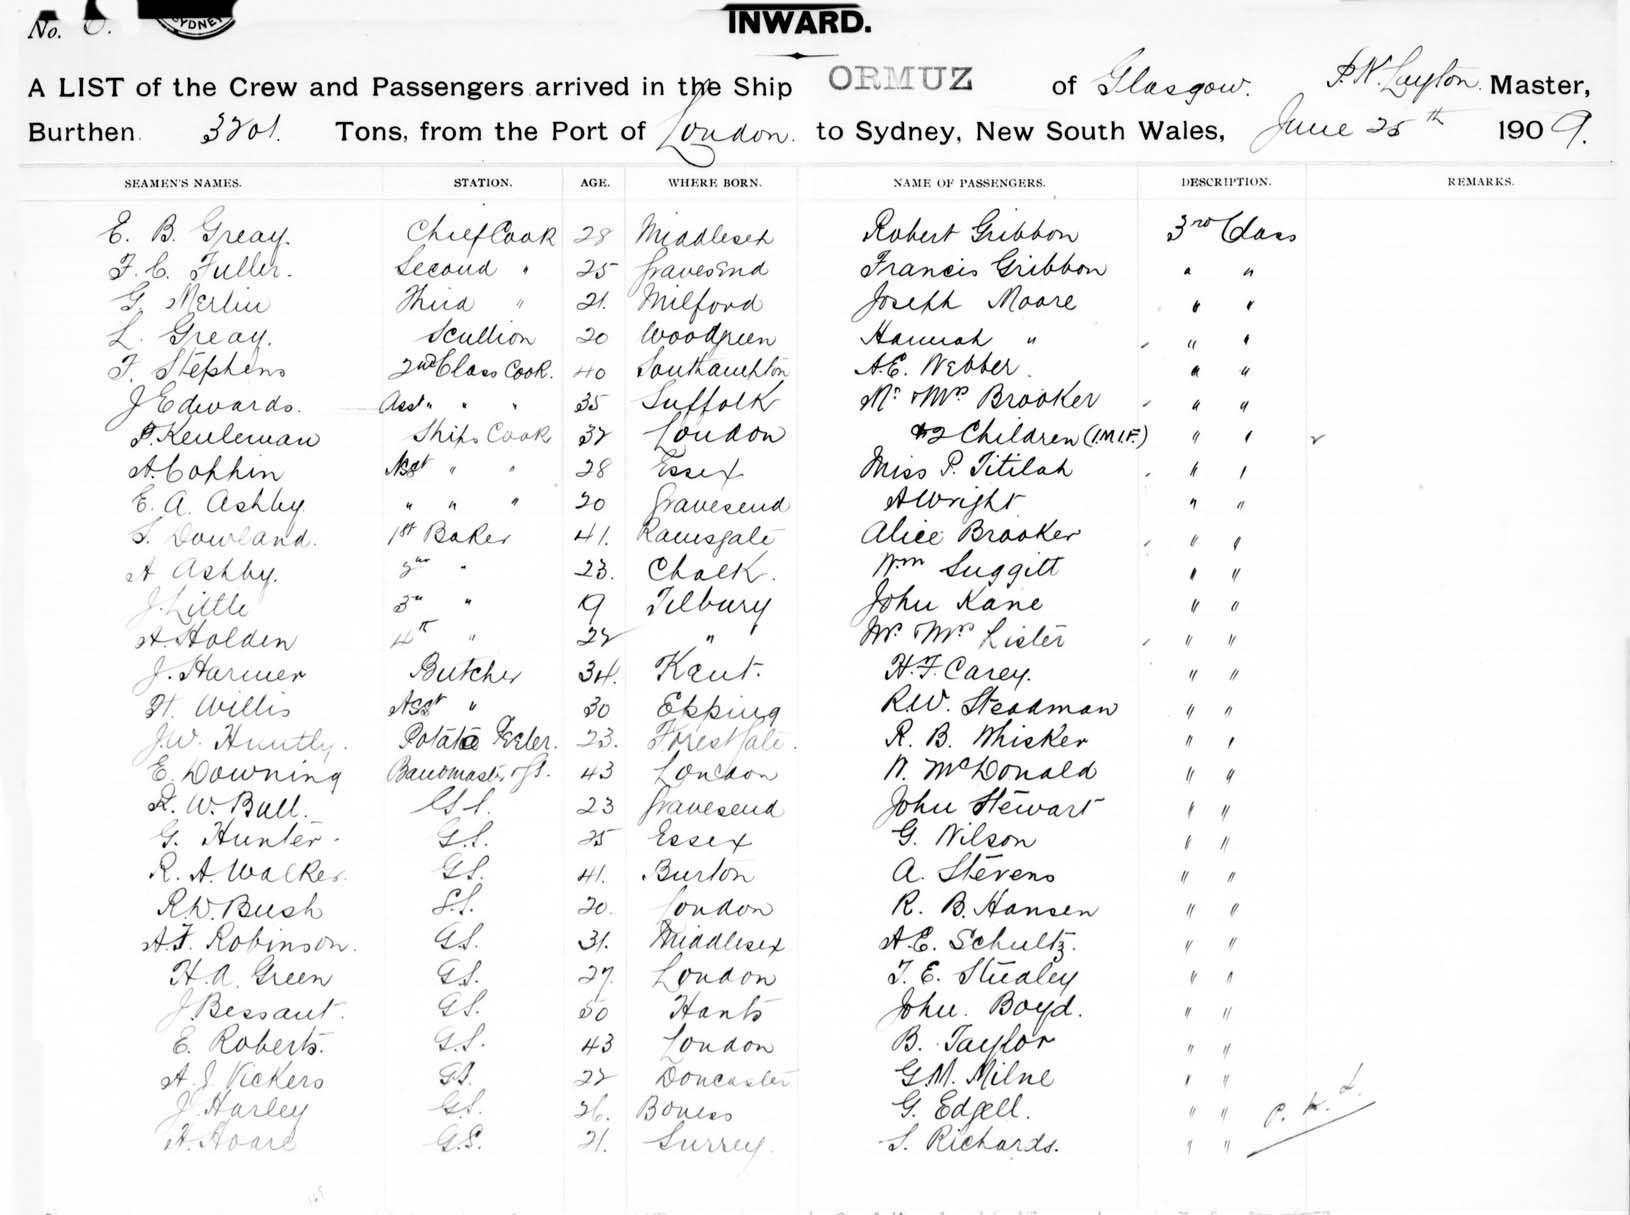 No. 6.
SYDNEY
INWARD.
A LIST of the Crew and Passengers arrived in the Ship ORMUZ of Glasgow. P.K. Layton. Master,
Burthen 3201. Tons, from the Port of London. to Sydney, New South Wales, June 25th 1909.
SEAMEN'S NAMES. STATION. AGE. WHERE BORN. NAME OF PASSENGERS. DESCRIPTION. REMARKS.
E. B. Greay. Chief Cook 28 Middlesex Robert Gribbon 3rd Class
F. C. Fuller. Second " 25 Gravesend Francis Gribbon " "
G. Merlin Third " 21. Milford Joseph Moare " "
L. Greay. Scullion 20 Woodgreen Hannah " " "
F. Stephens 2nd Class Cook. 40 Southampton A.E. Webber. " "
J Edwards. Asst " " " 35 Suffolk Mr & Mrs Brooker " "
P. Keuleman Ships Cook 32 London & 2 Children (I.M.I.F.) " "
A. Coppin Asst " " 28 Essex Miss P. Titilah " "
E. A. Ashby " " " 20 Gravesend A Wright " "
S. Dowland. 1st Baker 41. Ramsgate Alice Brooker " "
A Ashby. 2nd " 23. Chalk. Wm Suggitt " "
J. Little 3rd " 19 Tilbury John Kane " "
A. Holden 4th " 22 " Mr & Mrs Lister " "
J. Harmer Butcher 34. Kent. H.F. Carey. " "
H. Willis Asst " 30 Epping R.W. Steadman " "
J.W. Huntly. Potato Peeler. 23. Forest Gate. R. B. Whisker " "
E. Downing Bandmaster & G.S. 43 London W. McDonald " "
F. W. Ball. G.S. 23 Gravesend John Stewart " "
G. Hunter. G.S. 25 Essex G. Wilson " "
R. A. Walker. GS. 41. Burton A. Stevens " "
R.W. Bush G.S. 20. London R. B. Hansen " "
A.F. Robinson. GS. 31. Middlesex A.E. Schultz. " "
H. A. Green GS. 27. London T. E. Stualey " "
J. Bessant. GS. 50 Hants John. Boyd. " "
E. Roberts. G.S. 43 London B. Taylor " "
A. J. Vickers G.S. 22 Doncaster G.M. Milne " "
J. Harley G.S. 26. Boness G. Edgell. " "
H. Hoare G.S. 21. Surrey. S. Richards. " "
P. K. L.